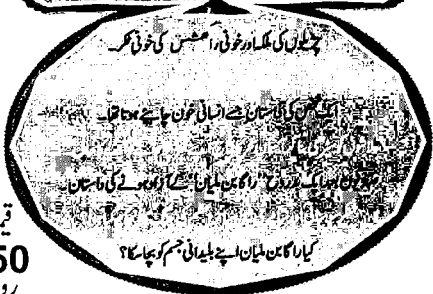 چڑیلوں کی ملکہ اور خونی راکھشس کی خونی ٹکر۔
کی داستان جسے انسانی خون چاہئے ہوتا تھا۔
ایک بدروح "راگا بن ملیان" کے آزاد ہونے کی داستان۔
کیا راگا بن ملیان اپنے بلیدانی جسم کو بچا سکا؟
50